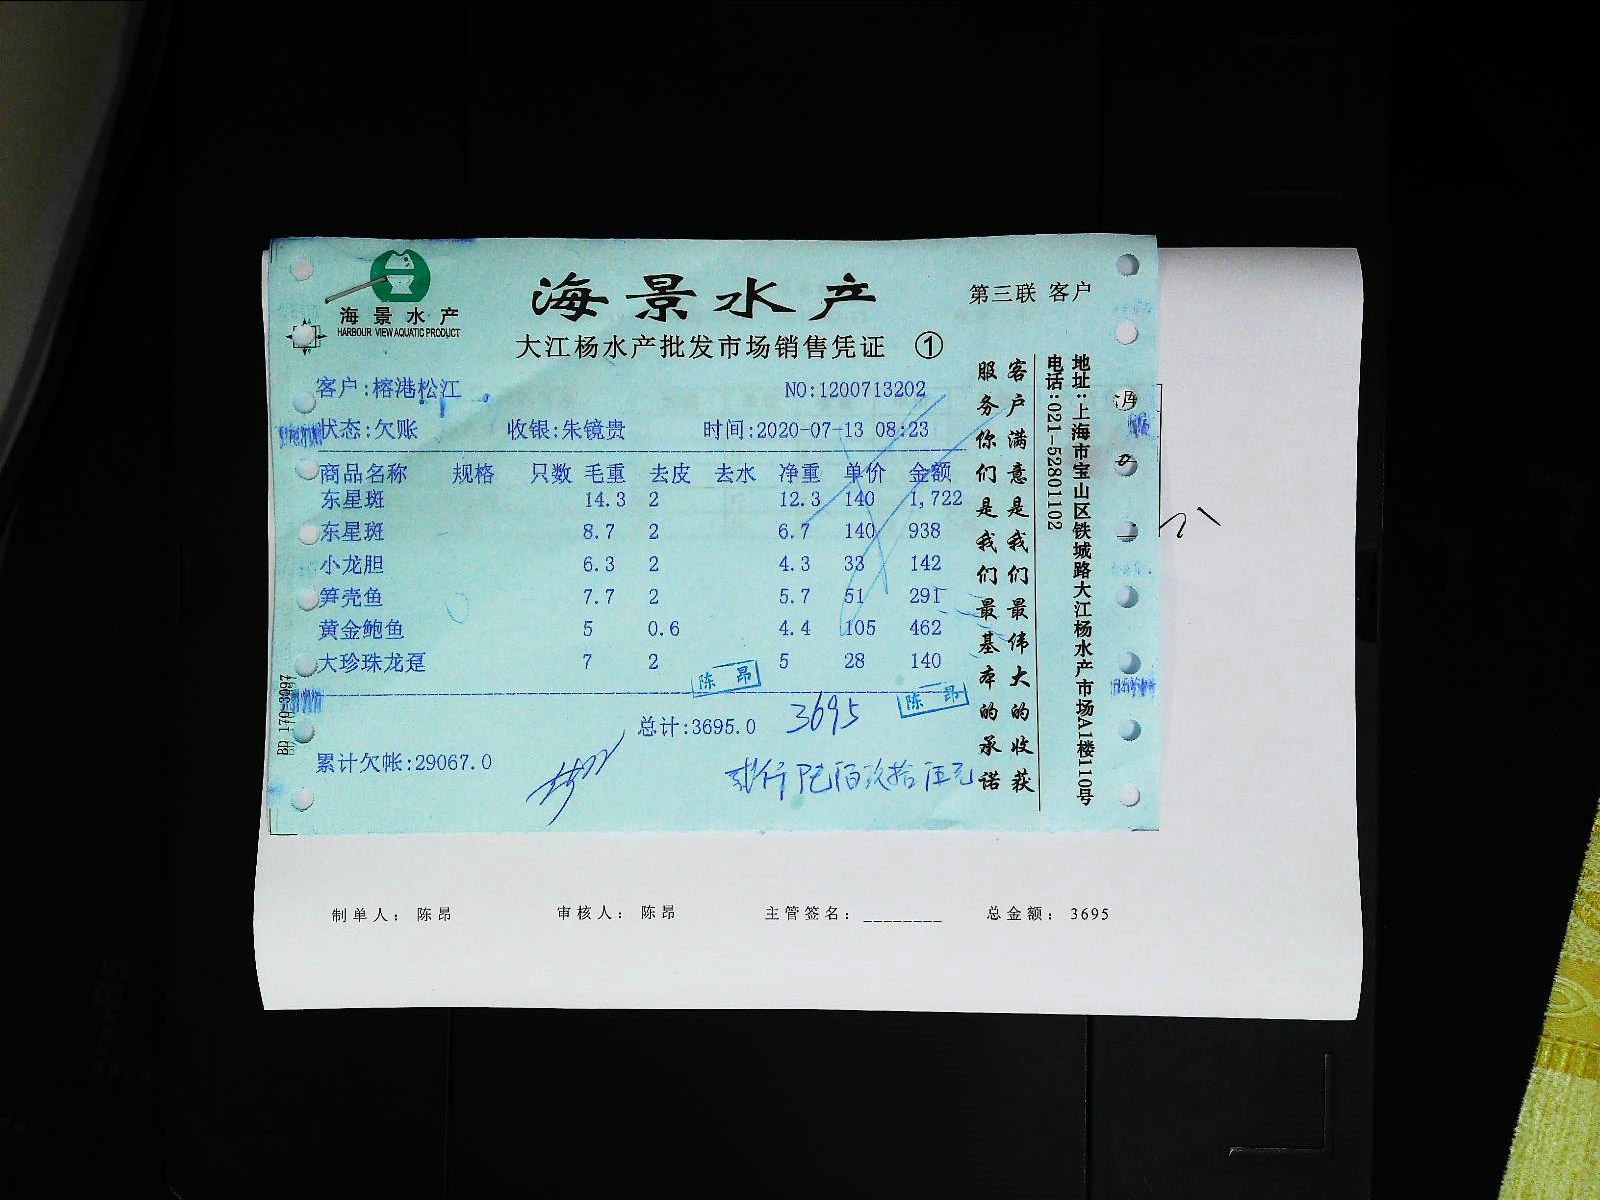 海景水产
HARBOUR VIEW AQUATIC PRODUCT
海景水产
第三联 客户
大江杨水产批发市场销售凭证 ①
客户:榕港松江
NO:1200713202
状态:欠账 收银:朱镜贵 时间:2020-07-13 08:23
商品名称 规格 只数 毛重 去皮 去水 净重 单价 金额
东星斑 14.3 2 12.3 140 1,722
东星斑 8.7 2 6.7 140 938
小龙胆 6.3 2 4.3 33 142
笋壳鱼 7.7 2 5.7 51 291
黄金鲍鱼 5 0.6 4.4 105 462
大珍珠龙趸 7 2 5 28 140
陈昂
陈昂
总计:3695.0 3695
累计欠帐:29067.0
佰玖拾伍元
客户满意是我们最伟大的收获
服务你们是我们最基本的承诺
地址:上海市宝山区铁城路大江杨水产市场A1楼110号
电话:021-52801102
制单人: 陈昂 审核人: 陈昂 主管签名:________ 总金额: 3695